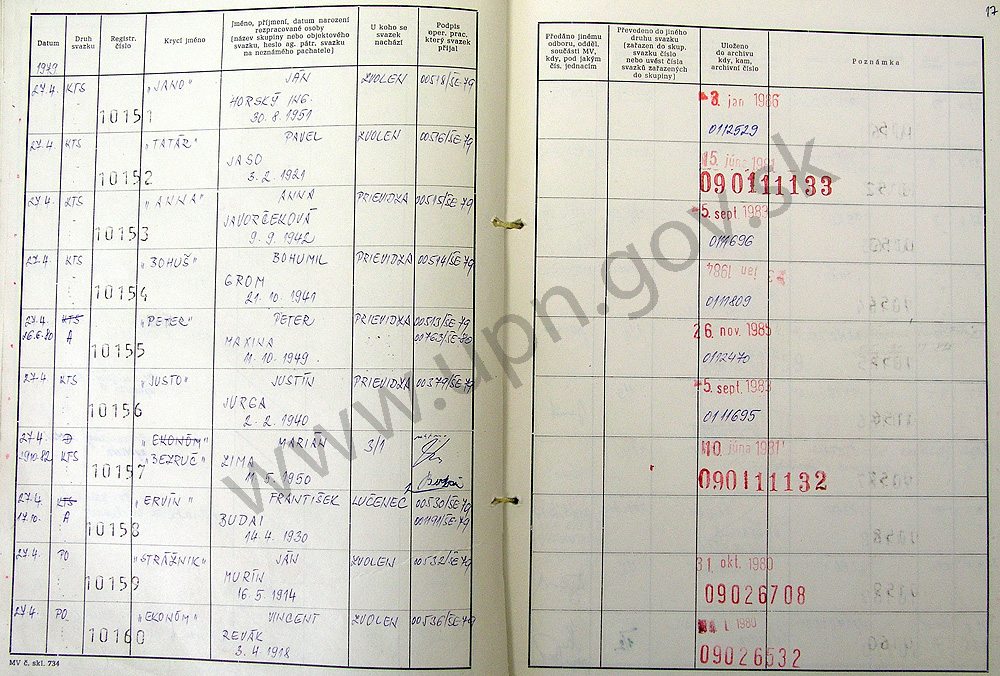 17
Datum
Druh svazku
Registr. číslo
Krycí jméno
Jméno, příjmení, datum narození rozpracované osoby (název skupiny nebo objektového svazku, heslo ag. pátr. svazku na neznámého pachatele)
U koho se svazek nachází
Podpis oper. prac. který svazek přijal
Předáno jinému odboru, odděl. součásti MV, kdy, pod jakým čís. jednacím
Převedeno do jiného druhu svazku (zařazen do skup. svazku číslo nebo uvést čísla svazků zařazených do skupiny)
Uloženo do archivu kdy, kam, archivní číslo
Poznámka
1979
27.4. KTS 10151 „JANO" JÁN ZVOLEN 00518/ŠE-79
HORSKÝ ING.
30. 8. 1951
3. jan 1986
0112529
27.4 KTS 10152 „TATÁR" PAVEL ZVOLEN 00516/ŠE-79
JAŠO
3. 2. 1921
15. júna 1981
090111133
27.4. KTS 10153 „ANNA" ANNA PRIEVIDZA 00515/ŠE-79
JAVORČEKOVÁ
9. 9. 1942
5. sept. 1983
0111696
27.4. KTS 10154 „BOHUŠ" BOHUMIL PRIEVIDZA 00514/ŠE-79
GROM
21. 10. 1941
3 jan 1984
0111809
27.4. KTS 10155 „PETER" PETER PRIEVIDZA 00513/ŠE-79
16.6.80 A 00763/ŠE-80
MAXINA
11. 10. 1949
26. nov. 1985
0112470
27.4 KTS 10156 „JUSTO" JUSTÍN PRIEVIDZA 00579/ŠE-79
JURGA
2. 2. 1940
5. sept. 1983
0111695
27.4. D 10157 „EKONÓM" MARIÁN 3/1
KTS „BEZRUČ" ZIMA
11. 5. 1950
10. júna 1981
090111132
27.4. KTS 10158 „ERVÍN" FRANTIŠEK LUČENEC 00530/ŠE-79
17.10. A BUDAI
14. 4. 1930
27.4. PO 10159 „STRÁŽNIK" JÁN ZVOLEN 00532/ŠE-79
MURÍN
16. 5. 1914
31. okt. 1980
09026708
27.4. PO 10160 „EKONÓM" VINCENT ZVOLEN 00536/ŠE-79
REVÁK
3. 4. 1918
1980
09026532
MV č. skl. 734
www.upn.gov.sk